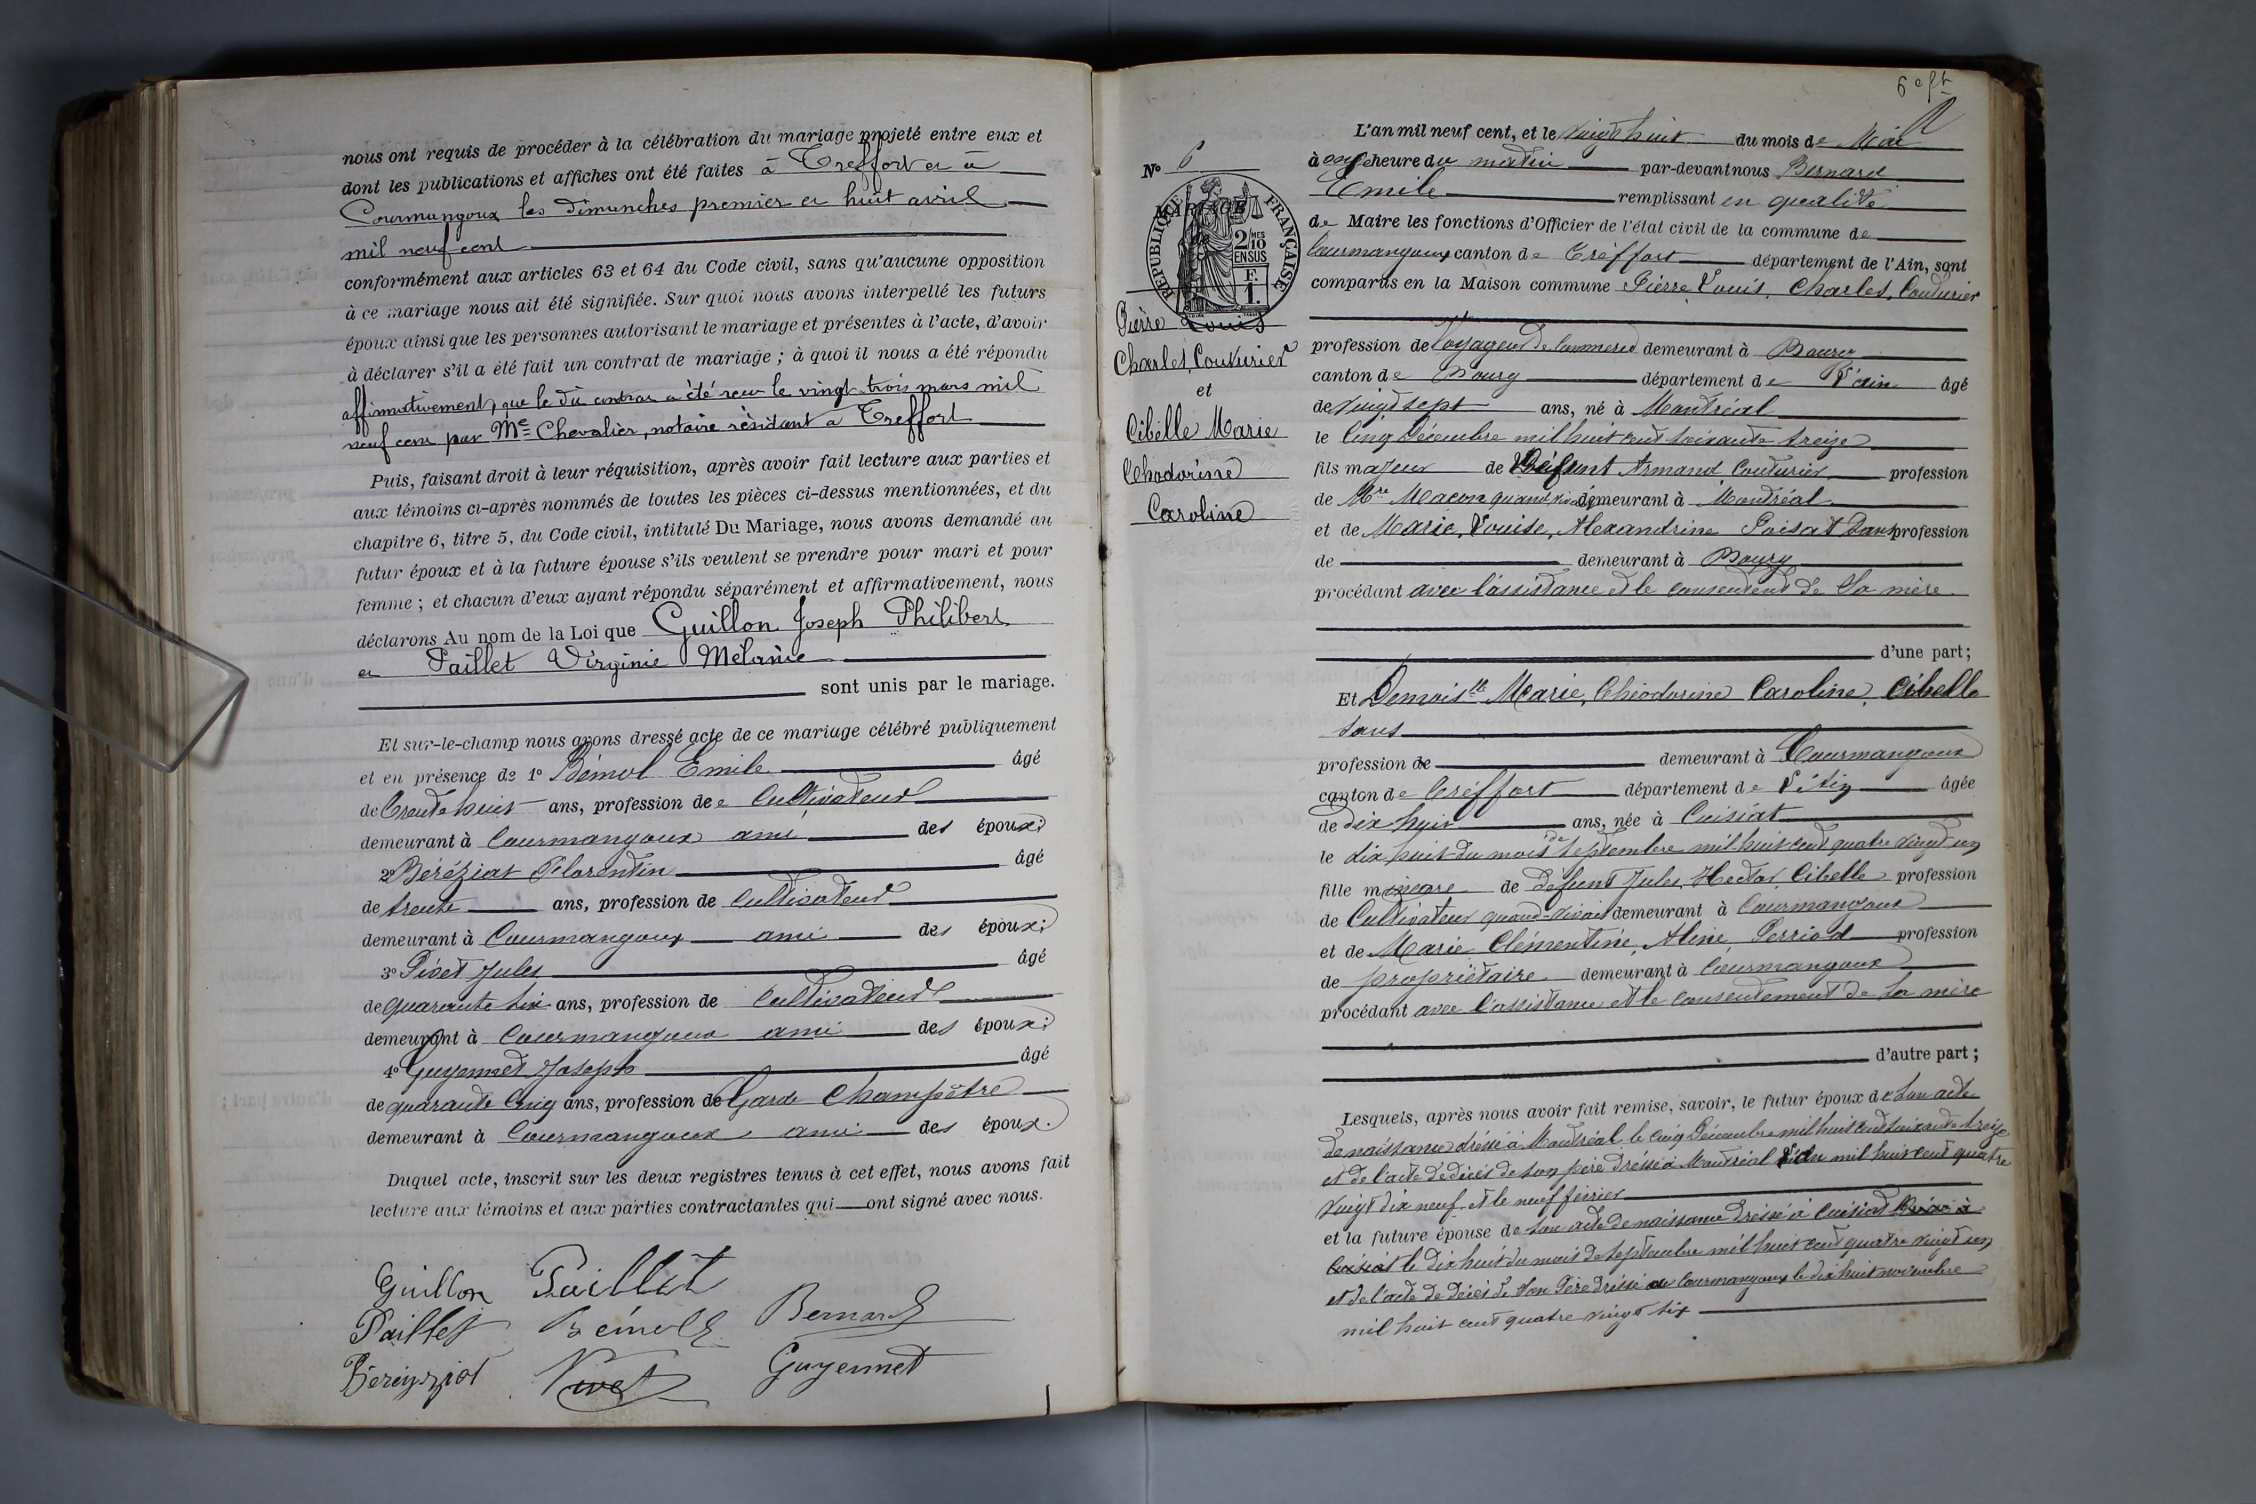 nous ont requis de procéder à la célébration du mariage projeté entre eux et
dont les publications et affiches ont été faites à Treffort et à
Courmangoux les dimanches premier et huit avril
mil neuf cent
conformément aux articles 63 et 64 du Code civil, sans qu'aucune opposition
à ce mariage nous ait été signifiée. Sur quoi nous avons interpellé les futurs
époux ainsi que les personnes autorisant le mariage et présentes à l'acte, d'avoir
à déclarer s'il a été fait un contrat de mariage ; à quoi il nous a été répondu
affirmativement, que le dit contrat a été reçu le vingt trois mars mil
neuf cent par Me Chevalier, notaire résidant à Treffort
Puis, faisant droit à leur réquisition, après avoir fait lecture aux parties et
aux témoins ci-après nommés de toutes les pièces ci-dessus mentionnées, et du
chapitre 6, titre 5, du Code civil, intitulé Du Mariage, nous avons demandé au
futur époux et à la future épouse s'ils veulent se prendre pour mari et pour
femme ; et chacun d'eux ayant répondu séparément et affirmativement, nous
déclarons Au nom de la Loi que Guillon Joseph Philibert
et Paillet Virginie Mélanie
sont unis par le mariage.
Et sur-le-champ nous avons dressé acte de ce mariage célébré publiquement
et en présence de 1° Bémol Emile âgé
de trente huit ans, profession de Cultivateur
demeurant à Courmangoux ami des époux;
2° Béréziat Florentin âgé
de trente ans, profession de Cultivateur
demeurant à Courmangoux ami des époux;
3° Pivet Jules âgé
de quarante six ans, profession de Cultivateur
demeurant à Courmangoux ami des époux;
4° Guyennet Joseph âgé
de quarante cinq ans, profession de Garde Champêtre
demeurant à Courmangoux ami des époux.
Duquel acte, inscrit sur les deux registres tenus à cet effet, nous avons fait
lecture aux témoins et aux parties contractantes qui ont signé avec nous.
Guillon Paillet
Paillet Bémol Bernard
Béréziat Pivet Guyennet
6e ft
N° 6
MARIAGE
de
RÉPUBLIQUE FRANÇAISE
2/10 MES
EN SUS
F.
1.
Pierre Louis
Charles, Couturier
et
Cibelle Marie
Théodorine
Caroline
L'an mil neuf cent, et le vingt huit du mois de Mai
à onze heure du matin par-devant nous Bernard
Emile remplissant en qualité
de Maire les fonctions d'Officier de l'état civil de la commune de
Courmangoux canton de Tréffort département de l'Ain, sont
comparus en la Maison commune Pierre Louis, Charles, Couturier
profession de Voyageur de Commerce demeurant à Bourg
canton de Bourg département de l'ain âgé
de vingt sept ans, né à Montréal
le cinq Décembre mil huit cent soixante treize
fils majeur de Défunt Armand Couturier profession
de Mtre Macon quand vivait demeurant à Montréal
et de Marie, Louise, Alexandrine Poisat sans profession
de demeurant à Bourg
procédant avec l'assistance et le consentent de sa mère
d'une part;
Et Demoislle Marie, Théodorine Caroline, Cibelle
sans
profession de demeurant à Courmangoux
canton de Tréffort département de l'Ain âgée
de dix huit ans, née à Cuisiat
le dix huit du mois de Septembre mil huit cent quatre vingt un
fille mineure de défunt Jules, Hector, Cibelle profession
de Cultivateur quand-vivait demeurant à Courmangoux
et de Marie Clémentine, Aline, Perriod profession
de propriétaire demeurant à Courmangoux
procédant avec l'assistance et le consentement de sa mère
d'autre part;
Lesquels, après nous avoir fait remise, savoir, le futur époux de son acte
de naissance dréssé à Montréal le cinq Décembre mil huit cent soixante treize
et de l'acte de décès de son père dréssé à Montréal l'an mil huit cent quatre
vingt dix neuf et le neuf février
et la future épouse de son acte de naissance dréssé à Cuisiat
le dix huit du mois de septembre mil huit cent quatre vingt un
et de l'acte de décès de son Père dréssé à Courmangoux le dix huit novembre
mil huit cent quatre vingt six